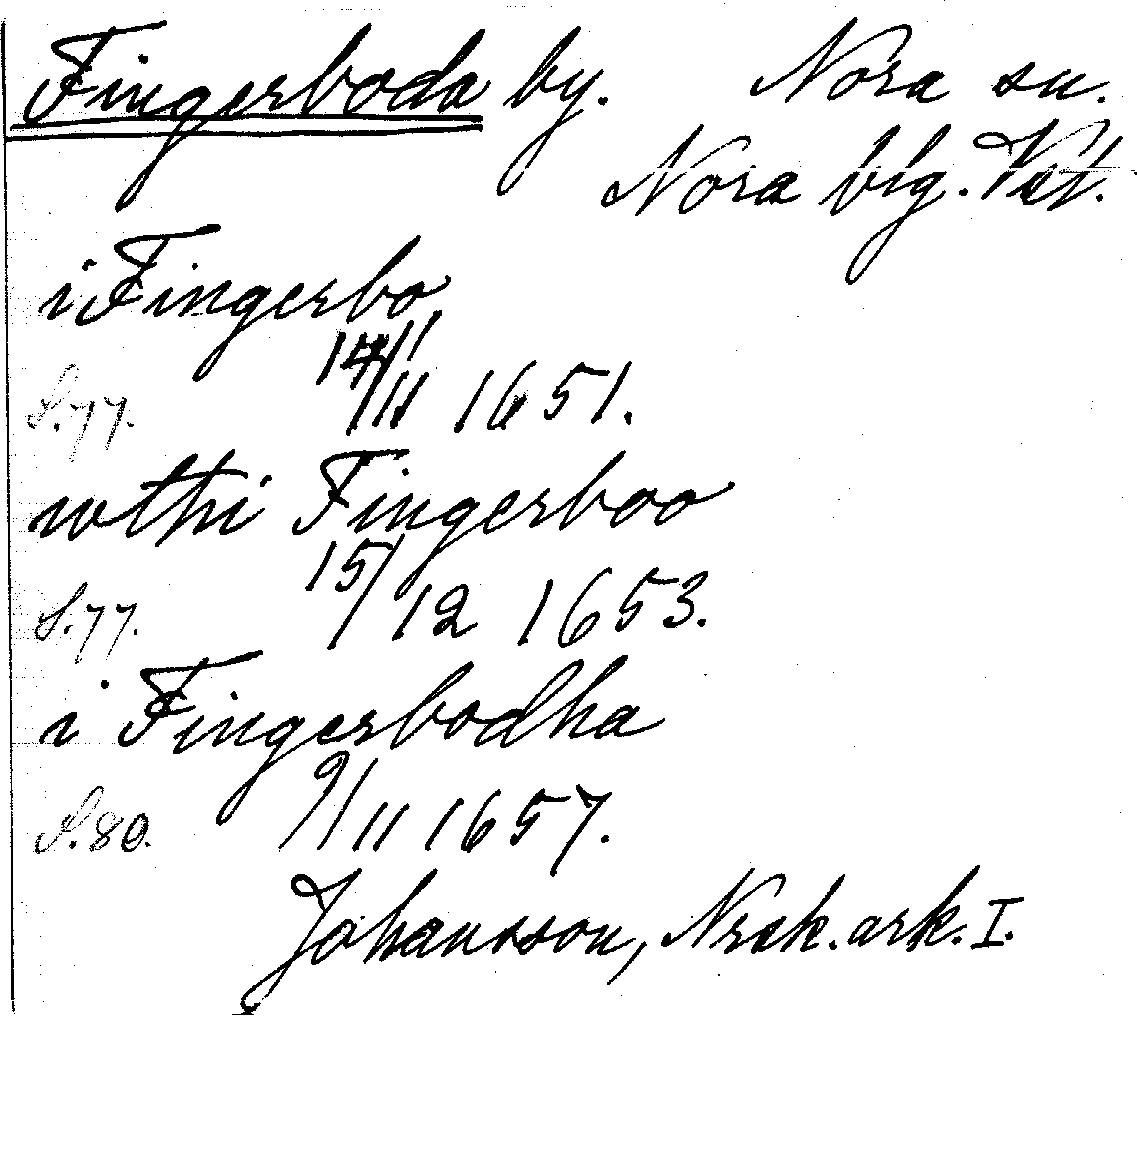 Fingerboda by. Nora sn.
Nora blg. Vst.
i Fingerbo
S.77. 14/11 1651.
wthi Fingerboo
S.77. 15/12 1653.
i Fingerbodha
S.80. 9/11 1657.
Johansson, Nrsk. ark. I.